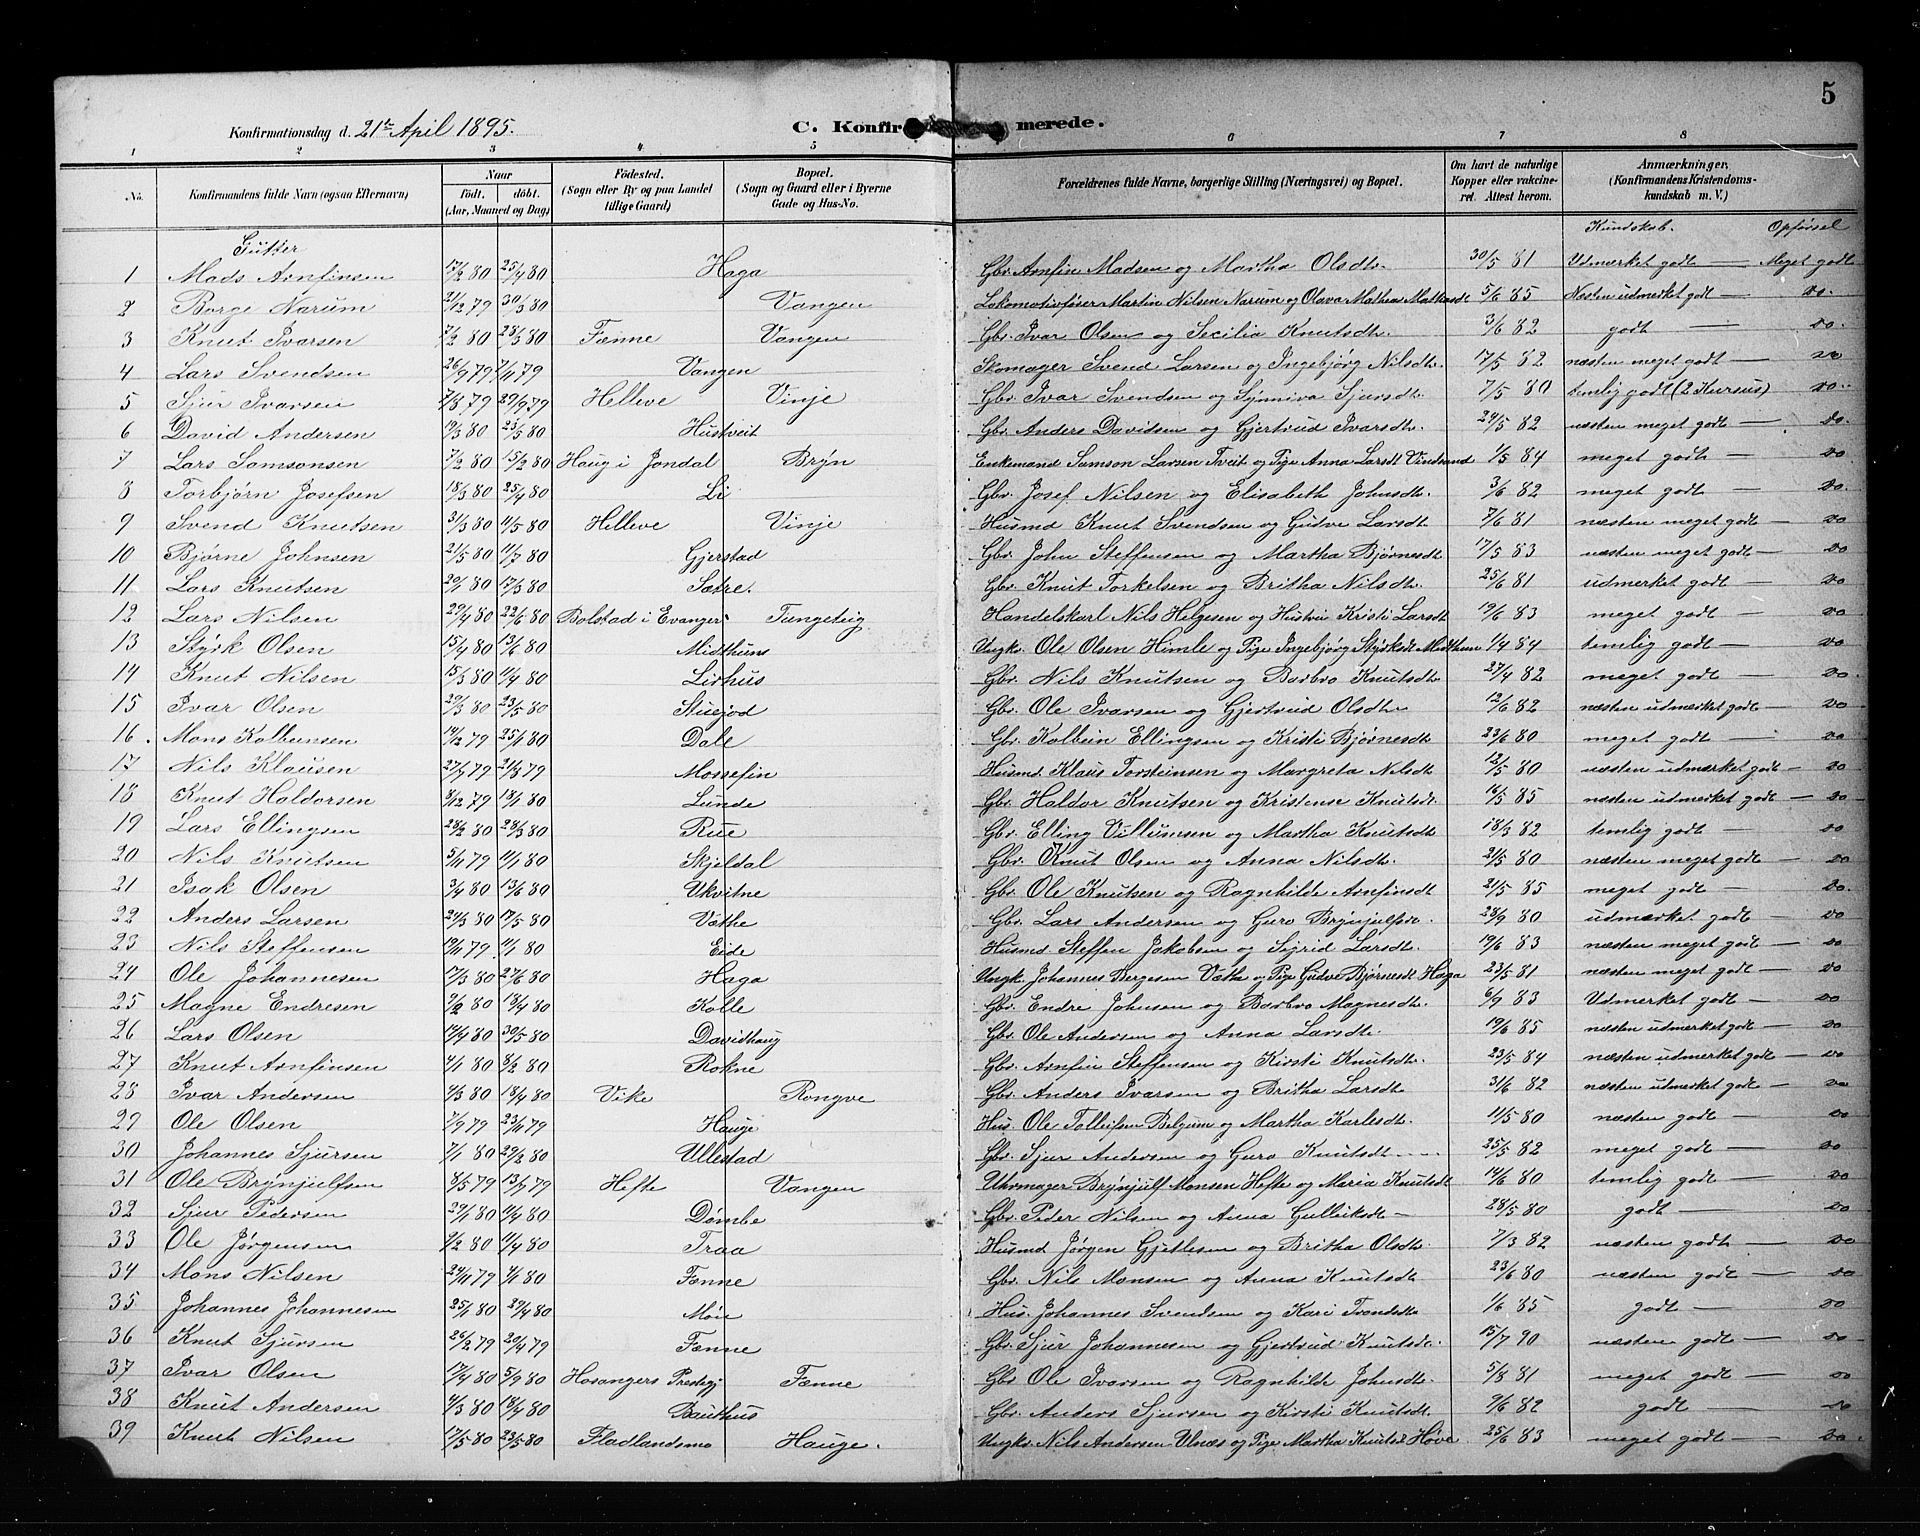 5
Konfirmationsdag d. 21de April 1895.
C. Konfirmerede.
1 2 3 4 5 6 7 8
No. Konfirmandens fulde Navn (ogsaa Efternavn) Naar født. døbt. (Aar, Maaned og Dag) Fødested. (Sogn eller By og paa Landet tillige Gaard) Bopæl. (Sogn og Gaard eller i Byerne Gade og Hus-No. Forældrenes fulde Navne, borgerlige Stilling (Næringsvei) og Bopæl. Om havt de naturlige Kopper eller vakcineret. Attest herom. Anmærkninger. (Konfirmandens Kristendomskundskab m. V.)
Gutter Kundskab. Opførsel
1 Mads Arnfinsen 17/2 80 25/4 80 Haga Gbr. Arnfin Madsen og Martha Olsdt. 30/5 81 Udmærket godt — Meget godt
2 Borge Narum 21/12 79 30/3 80 Vangen Lokomotivfører Martin Nilsen Narum og Olava Mathea Mathisdt 5/6 85 Næsten udmerket godt — Do.
3 Knut Ivarsen 7/2 80 28/3 80 Fænne Vangen Gbr. Ivar Olsen og Secilia Knutsdt. 3/6 82 godt — Do.
4 Lars Svendsen 26/9 79 7/11 79 Vangen Skomager Svend Larsen og Ingebjørg Nilsdt. 17/5 82 næsten meget godt — Do
5 Sjur Ivarsen 7/8 79 29/9 79 Helleve Vinje Gbr. Ivar Svendsen og Synneva Sjursdt. 7/5 80 temlig godt (2 Kursus) Do.
6 David Andersen 19/3 80 23/5 80 Hustveit Gbr. Anders Davidsen og Gjertrud Ivarsdt. 24/5 82 næsten meget godt — Do.
7 Lars Samsonsen 7/2 80 15/2 80 Haug i Jondal Bryn Enkemand Samson Larsen Tveit og Pige Anna Larsdt Vindsand 1/5 84 meget godt — Do
8 Torbjørn Josefsen 18/3 80 25/4 80 Li Gbr. Josef Nilsen og Elisabeth Johnsdt. 3/6 82 meget godt — Do.
9 Svend Knutsen 31/3 80 11/5 80 Helleve Vinje Husmd Knut Svendsen og Gudve Larsdt. 7/6 81 næsten meget godt — Do
10 Bjørne Johnsen 21/5 80 11/7 80 Gjerstad Gbr. John Steffensen og Martha Bjørnesdt 17/5 83 næsten meget godt — Do
11 Lars Knutsen 20/1 80 17/3 80 Sætre. Gbr. Knut Torkelsen og Britha Nilsdt. 25/6 81 udmerket godt — Do
12 Lars Nilsen 20/4 80 22/6 80 Bolstad i Evanger Tungeteig Handelskarl Nils Helgesen og Hustru Kristi Larsdt 19/6 83 meget godt — Do
13 Styrk Olsen 15/4 80 13/6 80 Midthuns Ungk. Ole Olsen Himle og Pige Ingebjørg Styrksdt Midthun 1/4 84 temlig godt — Do
14 Knut Nilsen 15/3 80 11/4 80 Lirhus Gbr. Nils Knutsen og Barbro Knutsdt. 27/4 82 meget godt — Do.
15 Ivar Olsen 29/3 80 23/5 80 Stuejod Gbr. Ole Ivarsen og Gjertrud Olsdt. 12/6 82 næsten udmærket godt — Do
16. Mons Kolbensen 19/12 79 25/1 80 Dale Gbr. Kolbein Ellingsen og Kristi Bjørnesdt. 23/6 80 meget godt — Do
17 Nils Klausen 27/7 79 21/9 79 Mossefin Husmd. Klaus Torsteinsen og Margreta Nilsdt 12/5 80 næsten udmærket godt — Do
18 Knut Haldorsen 8/12 79 18/1 80 Lunde Gbr. Haldor Knutsen og Kristense Knutsdt. 16/5 85 næsten udmærket godt — Do
19 Lars Ellingsen 28/2 80 28/3 80 Rue Gbr. Elling Villumsen og Martha Knutsdt 18/3 82 temlig godt — Do
20 Nils Knutsen 5/11 79 11/1 80 Skjeldal Gbr. Knut Olsen og Anna Nilsdt. 21/5 80 næsten meget godt — Do
21 Isak Olsen 3/4 80 13/6 80 Ukvitne Gbr. Ole Knutsen og Ragnhilde Arnfinsdt 21/5 85 meget godt — Do.
22 Anders Larsen 24/3 80 17/5 80 Væthe Gbr. Lars Andersen og Guro Brynjulfsd. 28/9 80 udmærket godt — Do
23 Nils Steffensen 19/11 79 11/1 80 Eide Husmd Steffen Jakobsen og Sigrid Larsdt. 19/6 83 næsten meget godt — Do
24 Ole Johannesen 17/3 80 27/6 80 Haga Ungk. Johannes Bergesen Væthe og Pige Gudve Bjørnesdt Haga 23/5 81 næsten meget godt — Do
25 Magne Endresen 9/2 80 18/4 80 Kolle Gbr. Endre Johnsen og Barbro Magnesdt. 6/9 83 Udmerket godt — Do
26 Lars Olsen 14/4 80 30/5 80 Davidhaug Gbr. Ole Andersen og Anna Larsdt. 19/6 85 næsten udmærket godt — Do
27 Knut Arnfinsen 4/1 80 8/2 80 Rokne Gbr. Arnfin Steffensen og Kirsti Knutsdt. 23/5 84 næsten udmærket godt — Do
28 Ivar Andersen 4/3 80 18/4 80 Vike Rongve Gbr. Anders Ivarsen og Britha Larsdt 31/6 82 næsten udmærket godt — Do
29 Ole Olsen 7/9 79 23/11 79 Hauge Hus. Ole Tolleifsen Belgum og Martha Karlesdt. 11/5 80 næsten godt — Do
30 Johannes Sjursen 7/1 80 29/2 80 Ullestad Gbr. Sjur Andersen og Guro Knutsdt. 25/5 82 meget godt — Do
31 Ole Brynjulfsen 8/5 79 13/7 79 Hefte Vangen Uhrmager Brynjulf Monsen Hefte og Maria Knutsdt 14/6 80 temlig godt — Do
32 Sjur Pedersen 29/1 80 11/4 80 Dømbe Gbr. Peder Nilsen og Anna Gulleiksdt — 28/5 80 godt — Do
33 Ole Jørgensen 9/2 80 11/4 80 Traa Husmd Jørgen Gjetlesen og Britha Olsdt. 7/3 82 næsten godt — Do
34 Mons Nilsen 24/11 79 4/1 80 Fænne Gbr. Nils Monsen og Anna Knutsdt 23/6 80 næsten godt — Do
35 Johannes Johannesen 25/1 80 29/4 80 Møn Hus. Johannes Svendsen og Kari Trondsdt 1/6 85 godt — Do
36 Knut Sjursen 26/2 79 20/4 79 Fænne Gbr. Sjur Johannesen og Gjertrud Knutsdt. 15/7 90 næsten godt — Do
37 Ivar Olsen 17/4 80 5/9 80 Hosangers Prestegj Fænne Gbr Ole Ivarsen og Ragnhilde Johnsdt. 5/8 81 meget godt — Do
38 Knut Andersen 4/3 80 18/4 80 Bauthus Gbr. Anders Sjursen og Kirsti Knutsdt. 9/6 82 godt — Do
39 Knut Nilsen 17/5 80 23/5 80 Fladlandsmo Hauge. Ungkr. Nils Andersen Ulnæs og Pige Martha Knutsd Høve 25/6 83 meget godt — Do